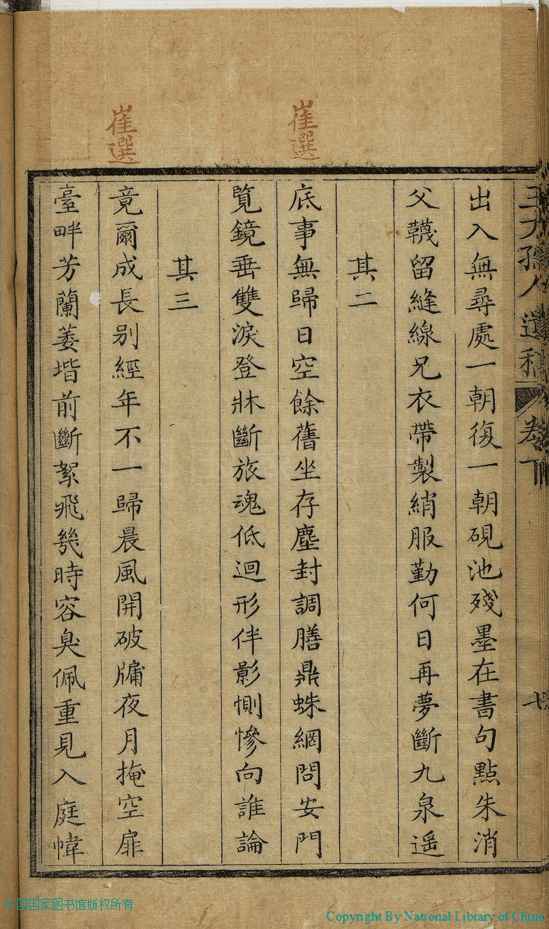 出入無尋處一朝復一朝硯池殘墨在書句點朱消
父韈留縫線兄衣帶製綃服勤何日再夢斷九泉遥
其二
底事無歸日空餘舊坐存塵封調膳鼎蛛網問安門
覽鏡垂雙淚登牀斷旅魂低迴形伴影惻慘向誰論
其三
竟爾成長别經年不一歸晨風開破牖夜月掩空扉
臺畔芳蘭萎堦前斷絮飛幾時容臭佩重見入庭幃
崔選
崔選
中国国家图书馆版权所有
Copyright By National Library of China